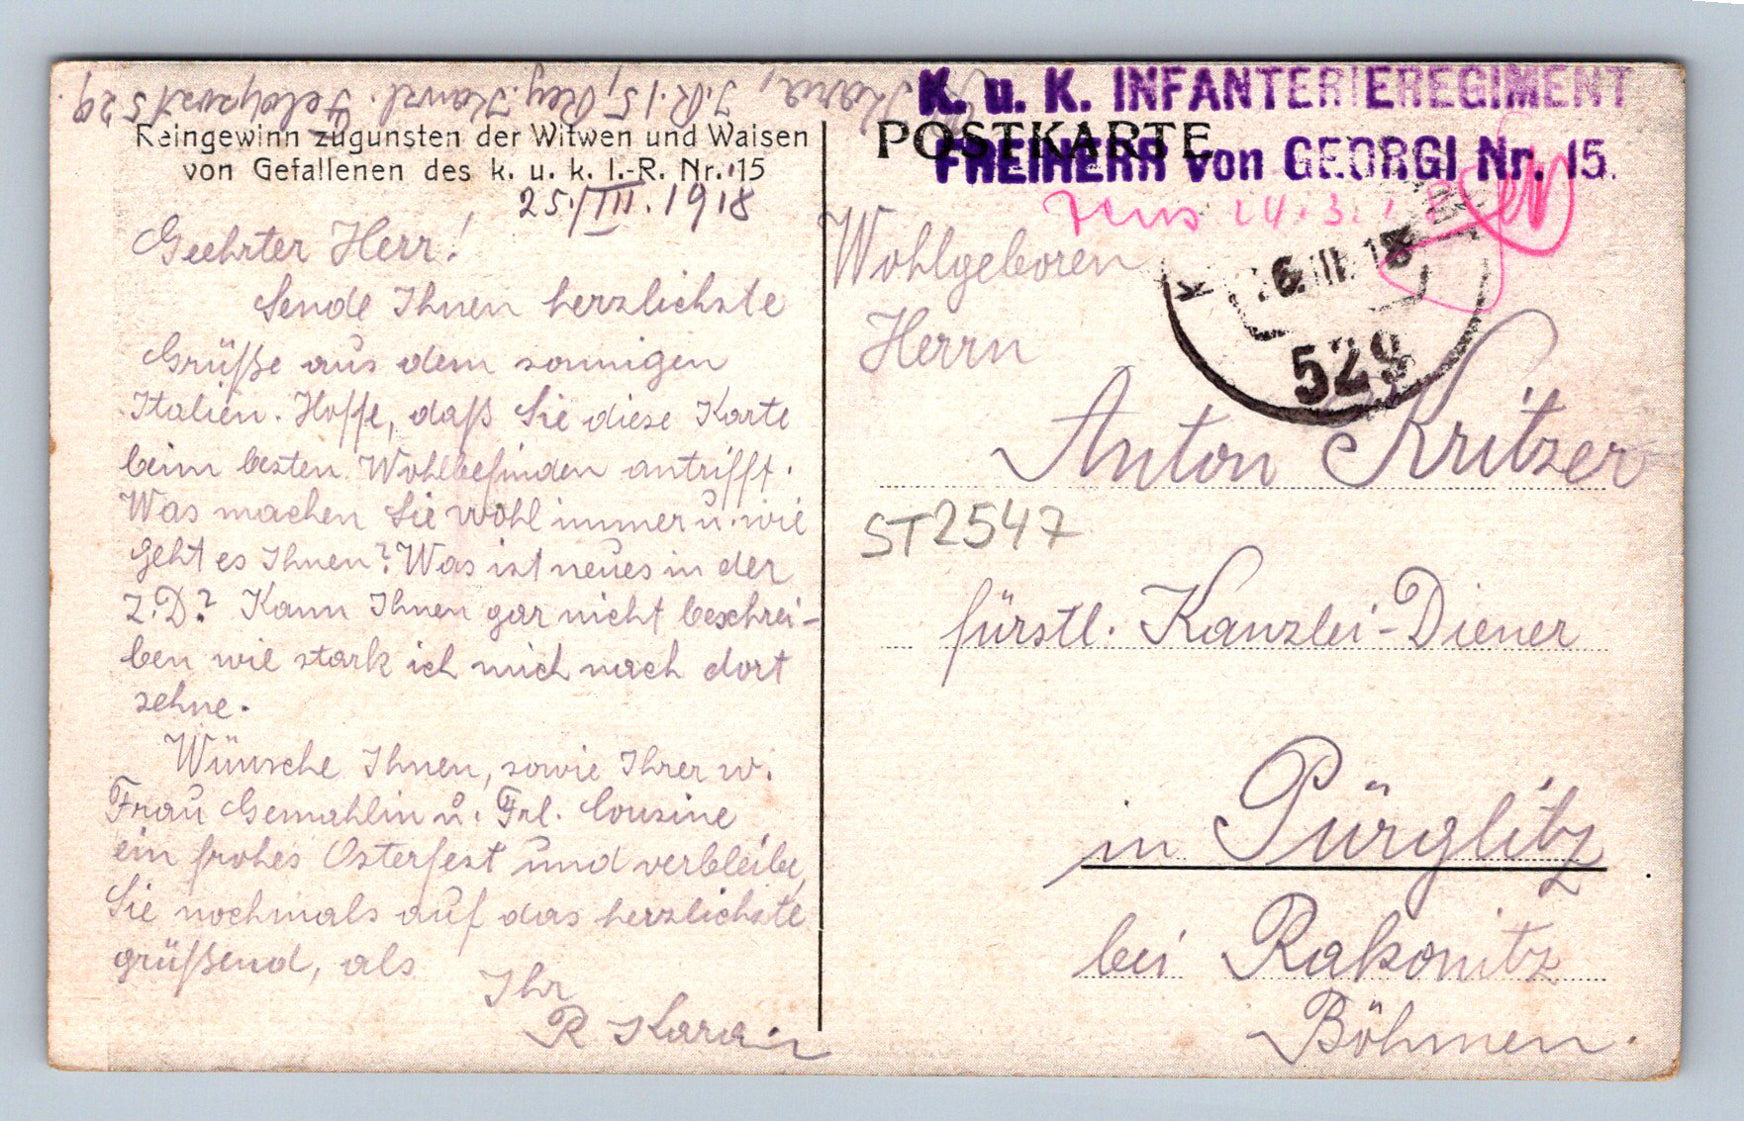 K. u. K. INFANTERIEREGIMENT
FREIHERR von GEORGI Nr. 15.
POSTKARTE
J.R. 15, Reg. Kanzl. Feldpost 529.
Reingewinn zugunsten der Witwen und Waisen
von Gefallenen des k. u. k. I.-R. Nr. 15
25./III. 1918
Geehrter Herr!
Sende Ihnen herzlichste
Grüße aus dem sonnigen
Italien. Hoffe, daß Sie diese Karte
beim besten Wohlbefinden antrifft.
Was machen Sie wohl immer u. wie
geht es Ihnen? Was ist neues in der
Z.D.? Kann Ihnen gar nicht beschrei-
ben wie stark ich mich nach dort
sehne.
Wünsche Ihnen, sowie Ihrer w.
Frau Gemahlin u. Frl. Cousine
ein frohes Osterfest und verbleibe,
Sie nochmals auf das herzlichste
grüßend, als
Ihr
R Kara
24.3.
6.III.18
529
Wohlgeboren
Herrn
Anton Kritzer
ST2547
fürstl. Kanzlei-Diener
in Pürglitz
bei Rakonitz
Böhmen.